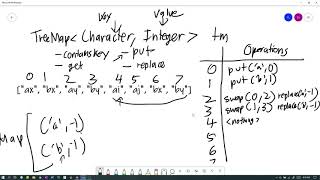 key value
TreeMap<Character, Integer> tm
- containsKey - put
- get - replace
Operations
0 1 2 3 4 5 6 7
["ax", "bx", "ay", "by", "ai", "aj", "bx", "by"]
0 put('a',0)
1 put('b',1)
2 swap(0,2) replace('a',-1)
3 swap(1,3) replace('b',-1)
4 <nothing>
5
6
7
map
('a',-1)
('b',-1)